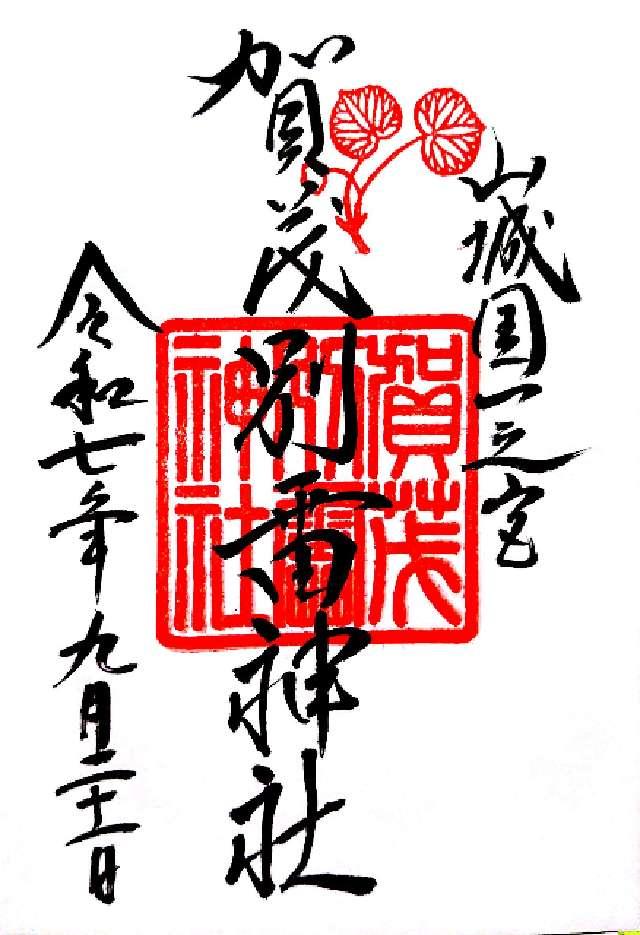 山城国一之宮
賀茂別雷神社
賀茂
別雷
神社
令和七年九月二十一日